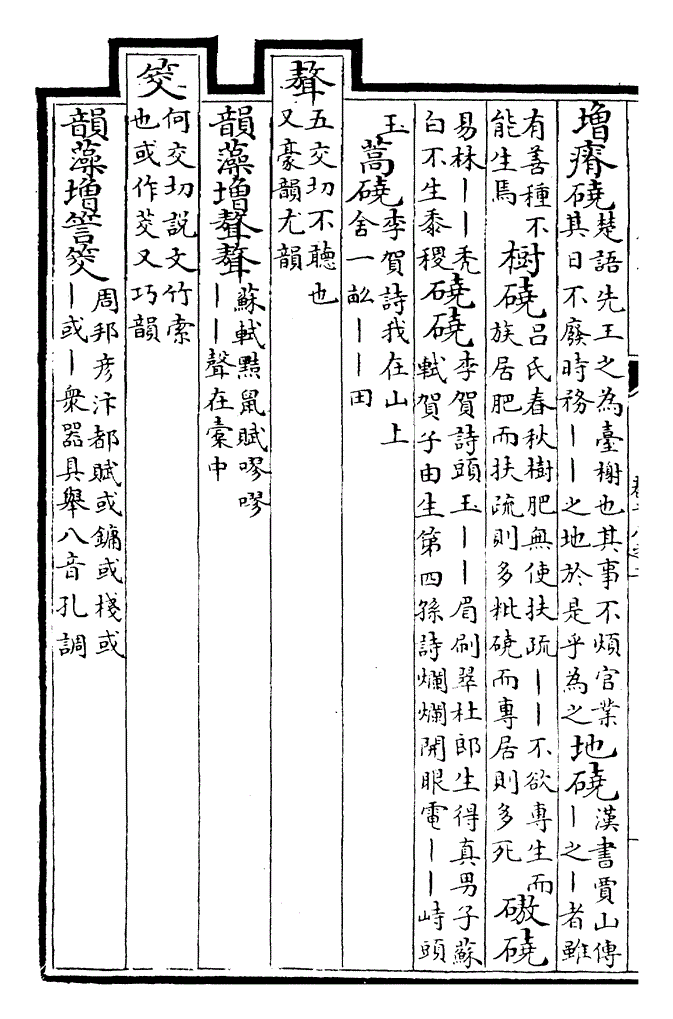 增瘠磽楚語先王之為臺榭也其事不煩官業
其日不廢時務——之地於是乎為之地磽漢書賈山傳
—之—者雖
有善種不
能生焉樹磽呂氏春秋樹肥無使扶疏——不欲專生而
族居肥而扶疏則多粃磽而專居則多死磝磽
易林——禿
白不生黍稷磽磽李賀詩頭玉——眉刷翠杜郎生得真男子蘇
軾賀子由生第四孫詩爛爛開眼電——峙頭
玉蒿磽李賀詩我在山上
舍一畝——田
聱五交切不聽也
又豪韻尤韻
韻藻增聱聱蘇軾黠鼠賦嘐嘐
——聲在橐中
筊何交切說文竹索
也或作茭又巧韻
韻藻增䇾筊周邦彥汴都賦或鏞或棧或
—或—衆器具舉八音孔調